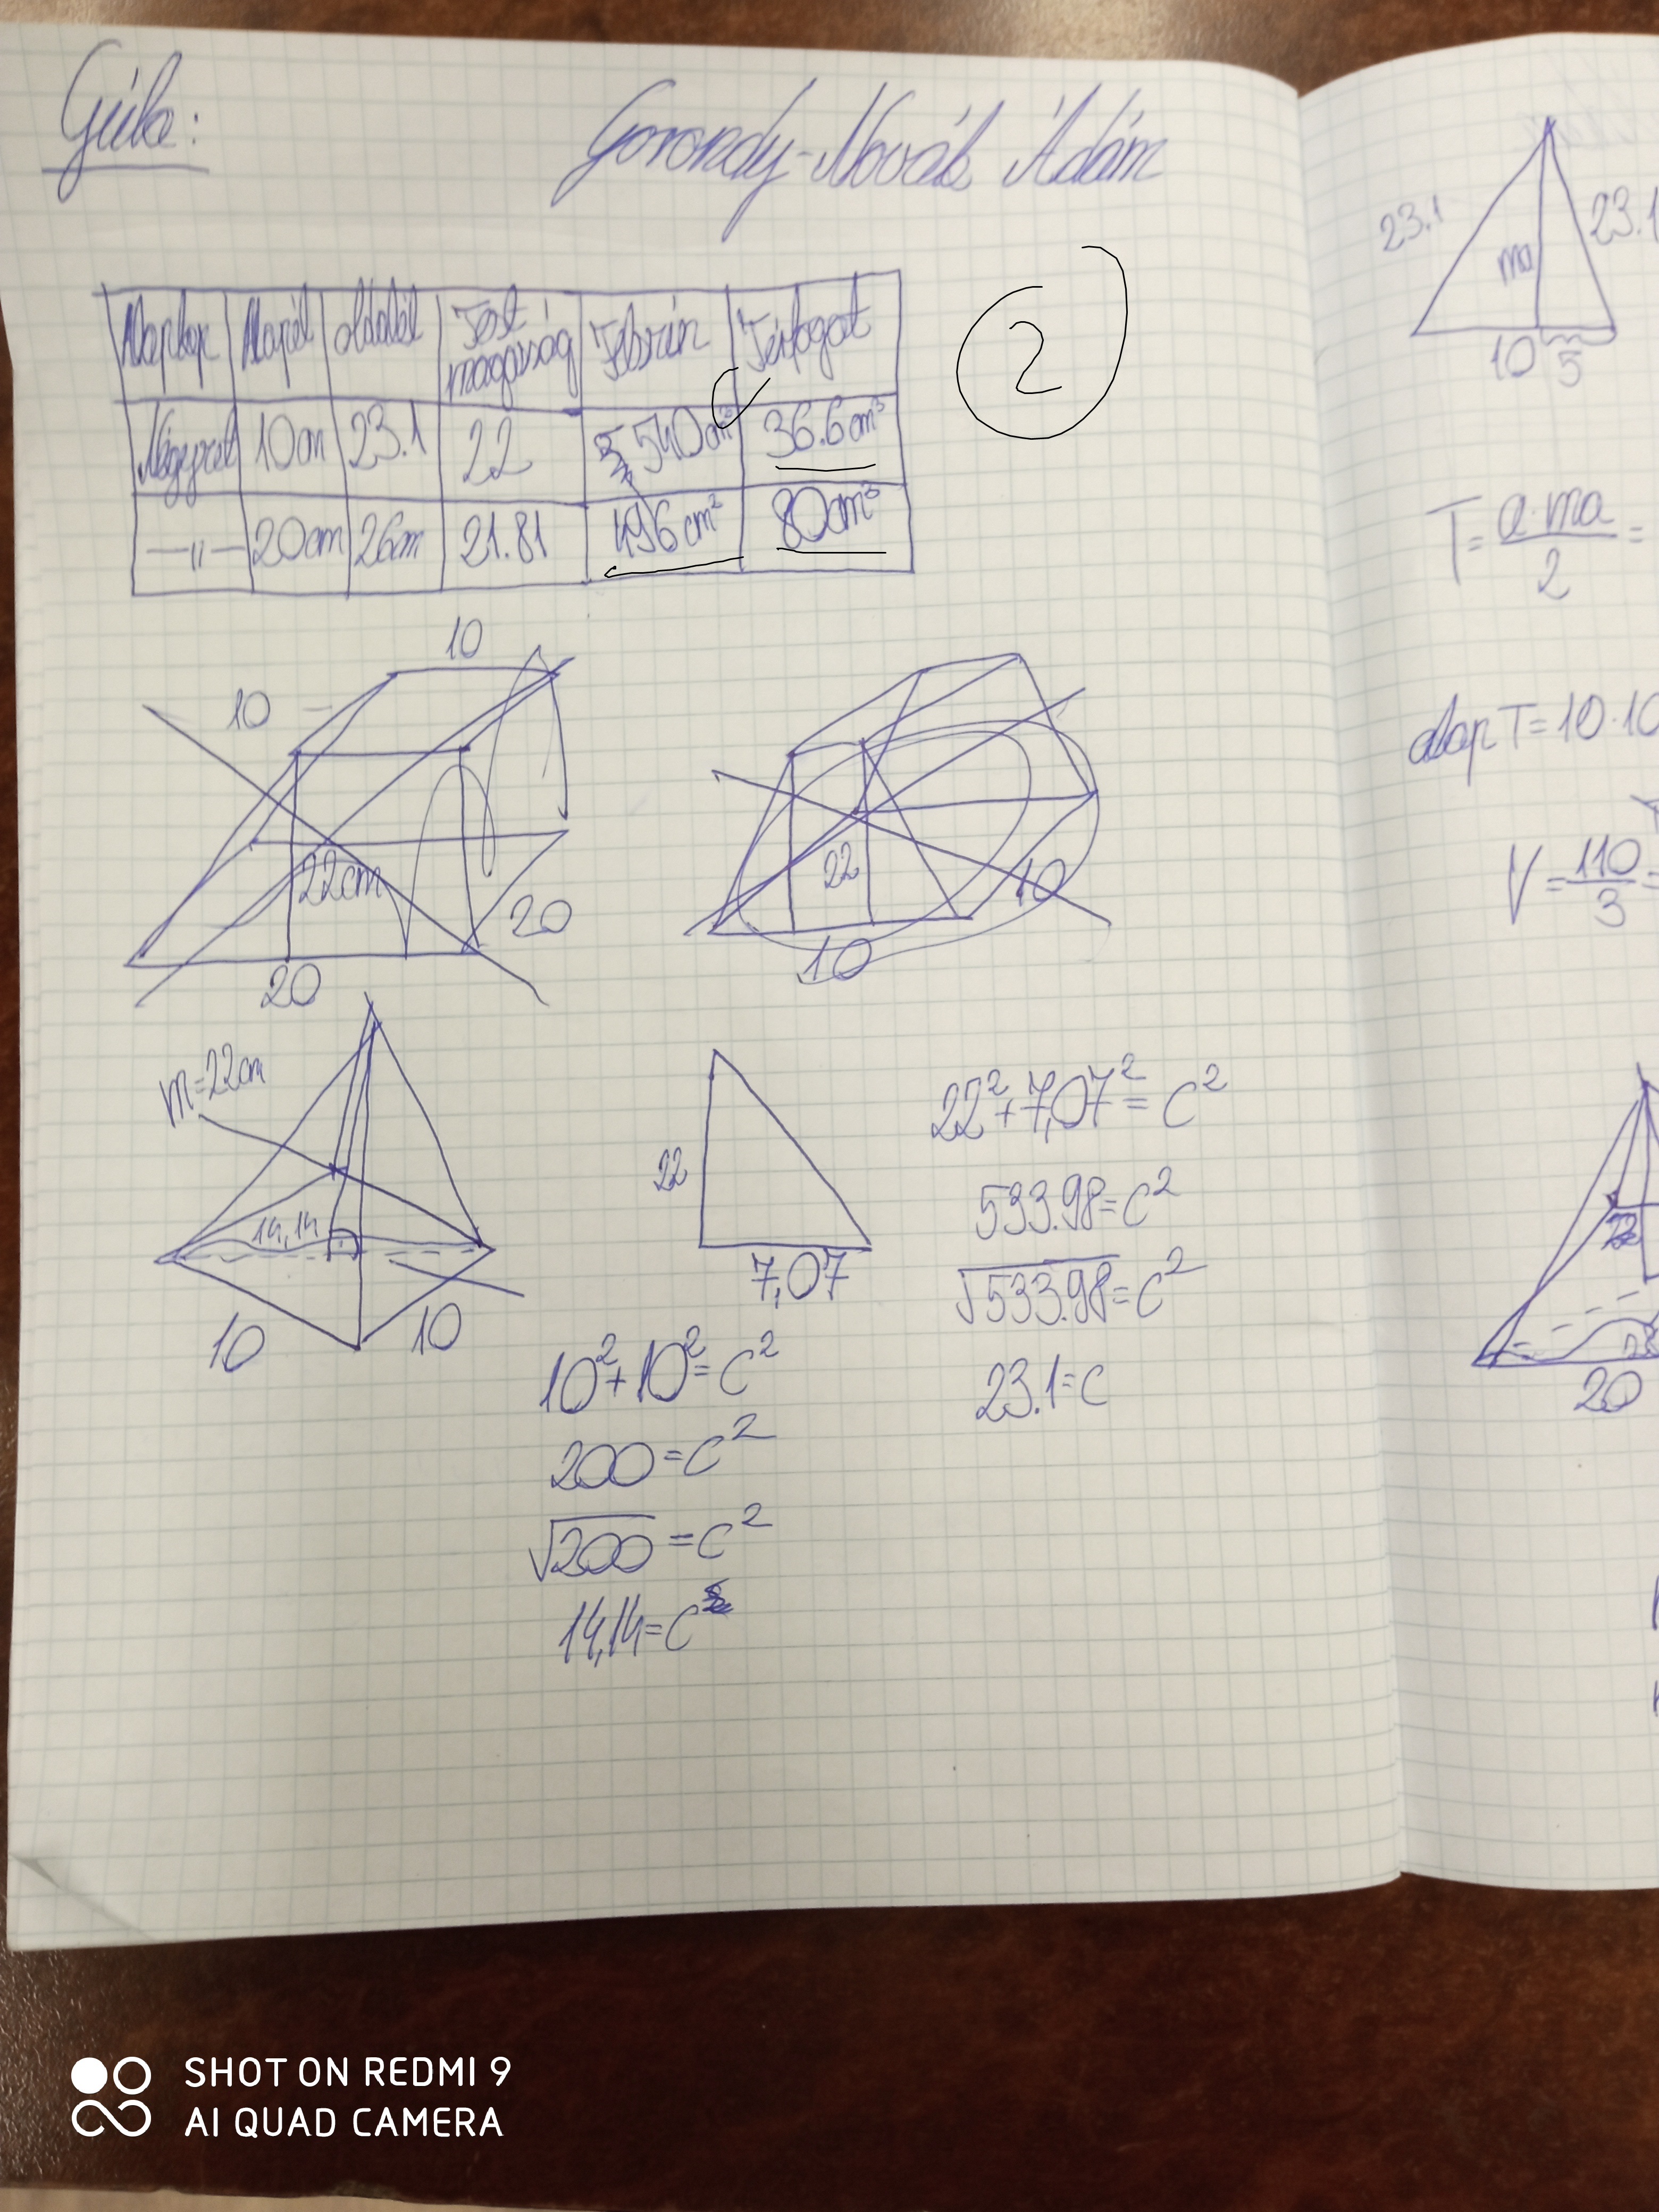 Gúla: Gorondy-Novák Ádám
Alaplap Alapél oldalél Test magasság Felszín Térfogat
Négyzet 10cm 23.1 22 540cm² 36.6cm³
—"— 20cm 26cm 21.81 1496cm² 80cm³
2
10
10
22cm
20
20
22
10
10
m=22cm
14,14
10 10
22
7,07
22²+7,07²=c²
533.98=c²
√533.98=c²
23.1=c
10²+10²=c²
200=c²
√200=c²
14,14=c
23.1 23.1
ma
10 5
T=a·ma/2=
alap T=10·10
V=110/3=
20
SHOT ON REDMI 9
AI QUAD CAMERA